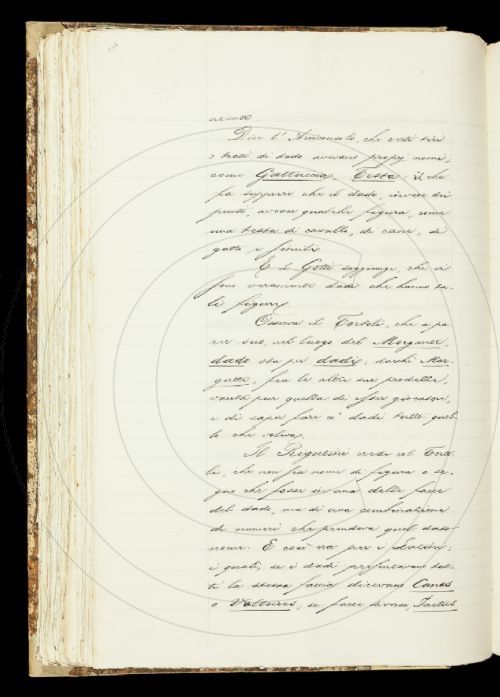 nismo.
Dice l'Amenesto, che certi tiri
o tratti di dado avevano proprj nomi,
come Gattuccia, Testa; il che
fa supporre che il dado, invece dei
punti, avesse qualche figura, come
una testa di cavallo, di cane, di
gatto e simili.
E il Gotti soggiunge, che vi
sono veramente dadi che hanno ta-
li figure.
Osserva il Tortoli, che a pa-
rer suo, nel luogo del Morgante,
dado sta per dadi; perchè Mar-
gutte, fra le altre sue prodezze,
vanta pur quella di esser giocatore,
e di saper fare a' dadi tutto quel-
lo che voleva.
Il Rigutini crede col Torto-
li, che non sia nome di figura o se-
gno che fosse in una delle facce
del dado, ma di una combinazione
di numeri che prendeva quel dato
nome. E così era per i Latini;
i quali, se i dadi presentavano tut-
ti la stessa faccia dicevano Canes
o Vulturis; se facce diverse, Jactus